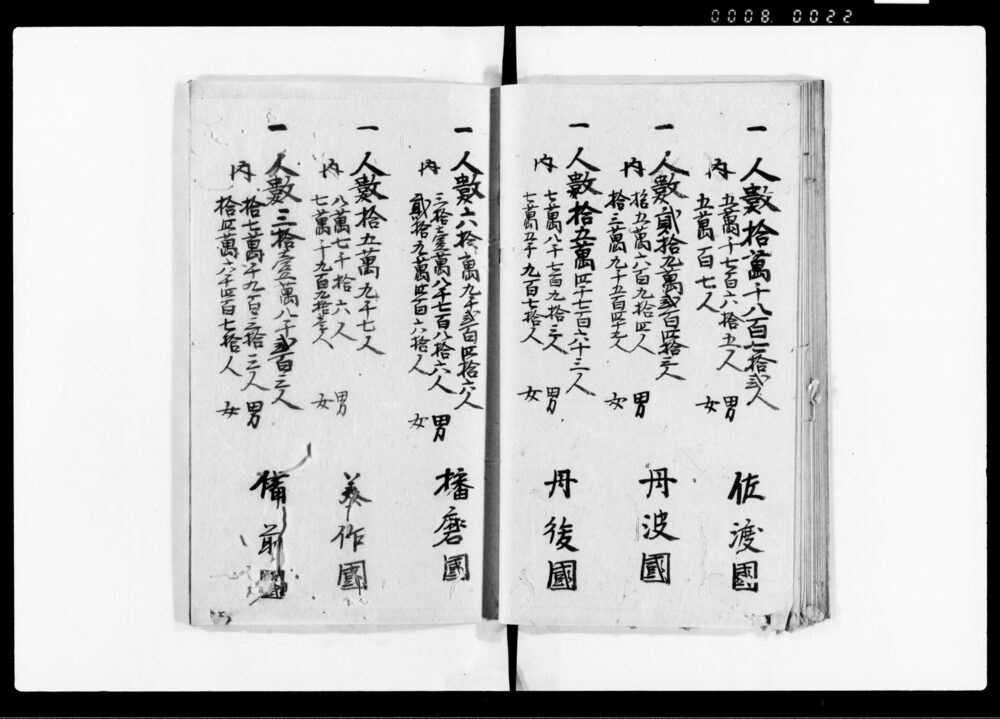 0008 0022
一人數拾萬千八百七拾弐人
内 五萬千七百六拾五人 男
五萬百七人 女
佐渡國
一人數貳拾九萬弐百四拾三人
内 拾五萬六百九拾四人 男
拾三萬九千五百四十九人 女
丹波國
一人數拾五萬四千七百六十三人
内 七萬八千七百九拾三人 男
七萬五千九百七拾人 女
丹後國
一人數六拾萬九千弐百四拾六人
内 三拾壹萬八千七百八拾六人 男
貳拾九萬四百六拾人 女
播磨國
一人數拾五萬九千七人
内 八萬七千拾六人 男
七萬千九百九拾壱人 女
美作國
一人數三拾壹萬八千弐百三人
内 拾七萬千七百三拾三人 男
拾四萬六千四百七拾人 女
備前國